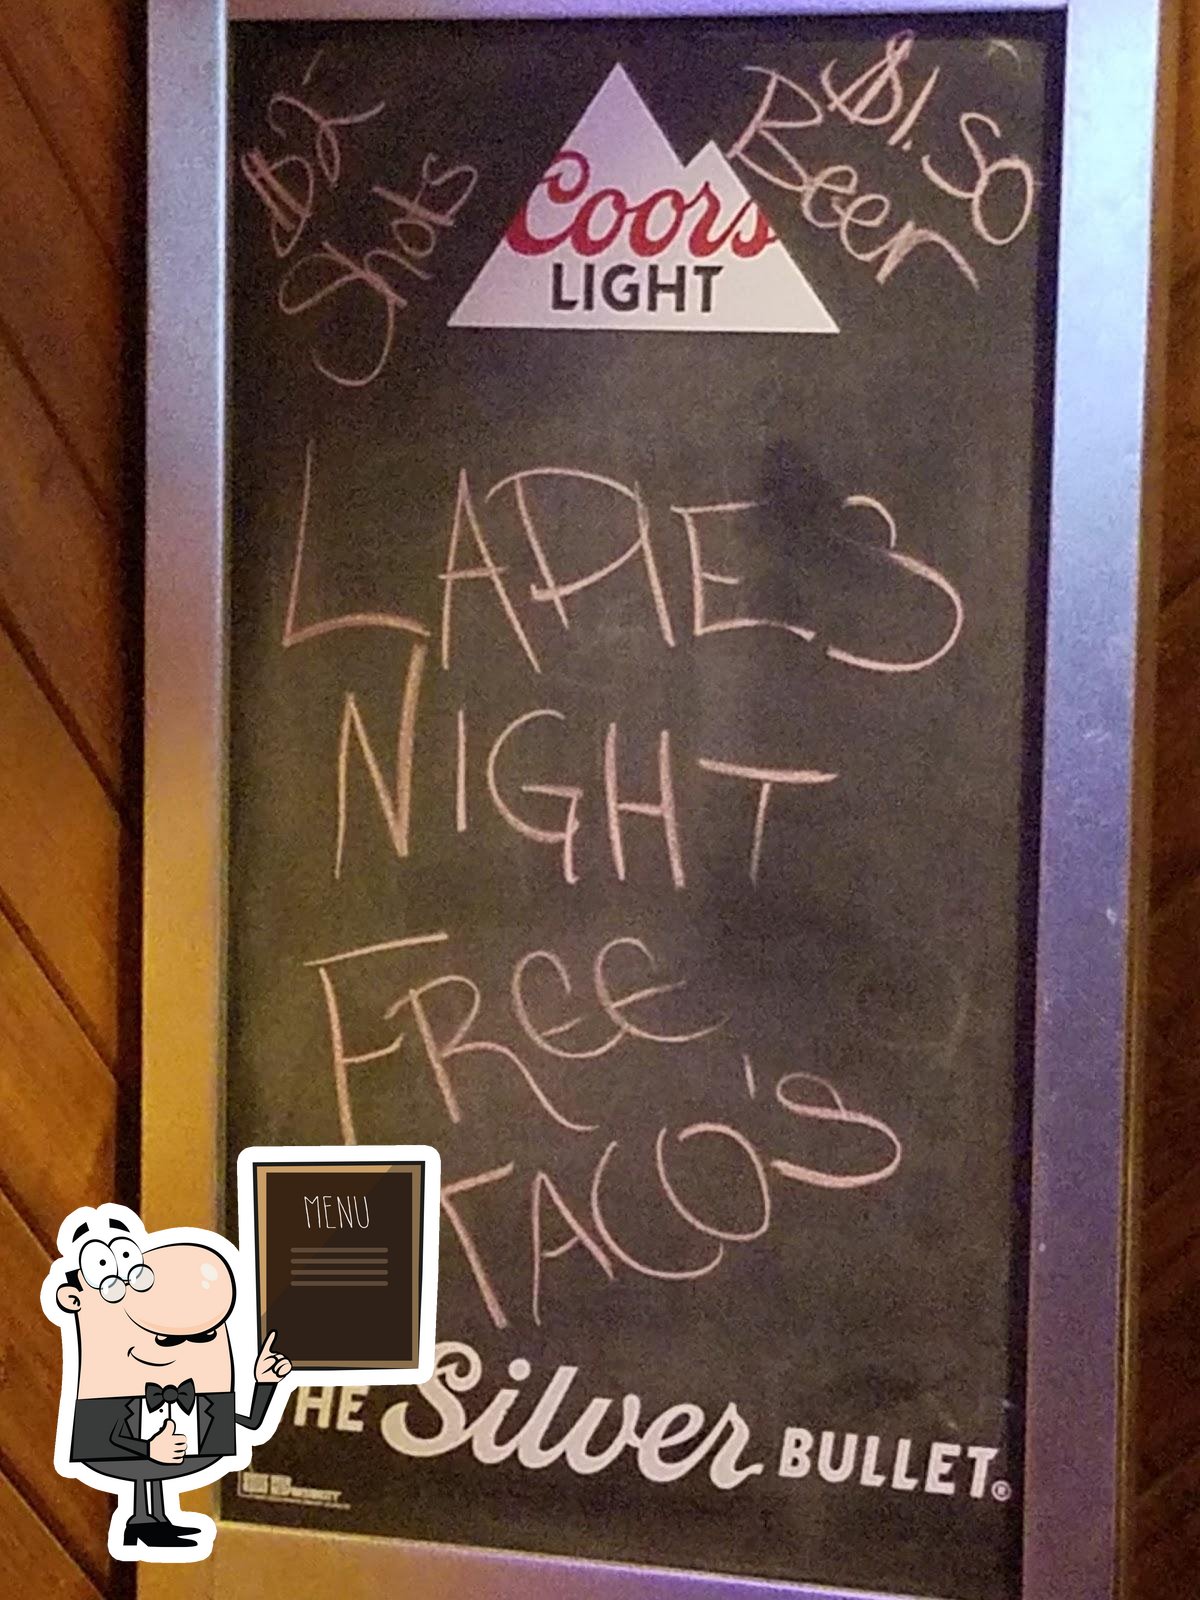 $2
Shots
$1.50
Beer
Coors
LIGHT
LADIES
NIGHT
FREE
TACO'S
MENU
THE Silver BULLET.®